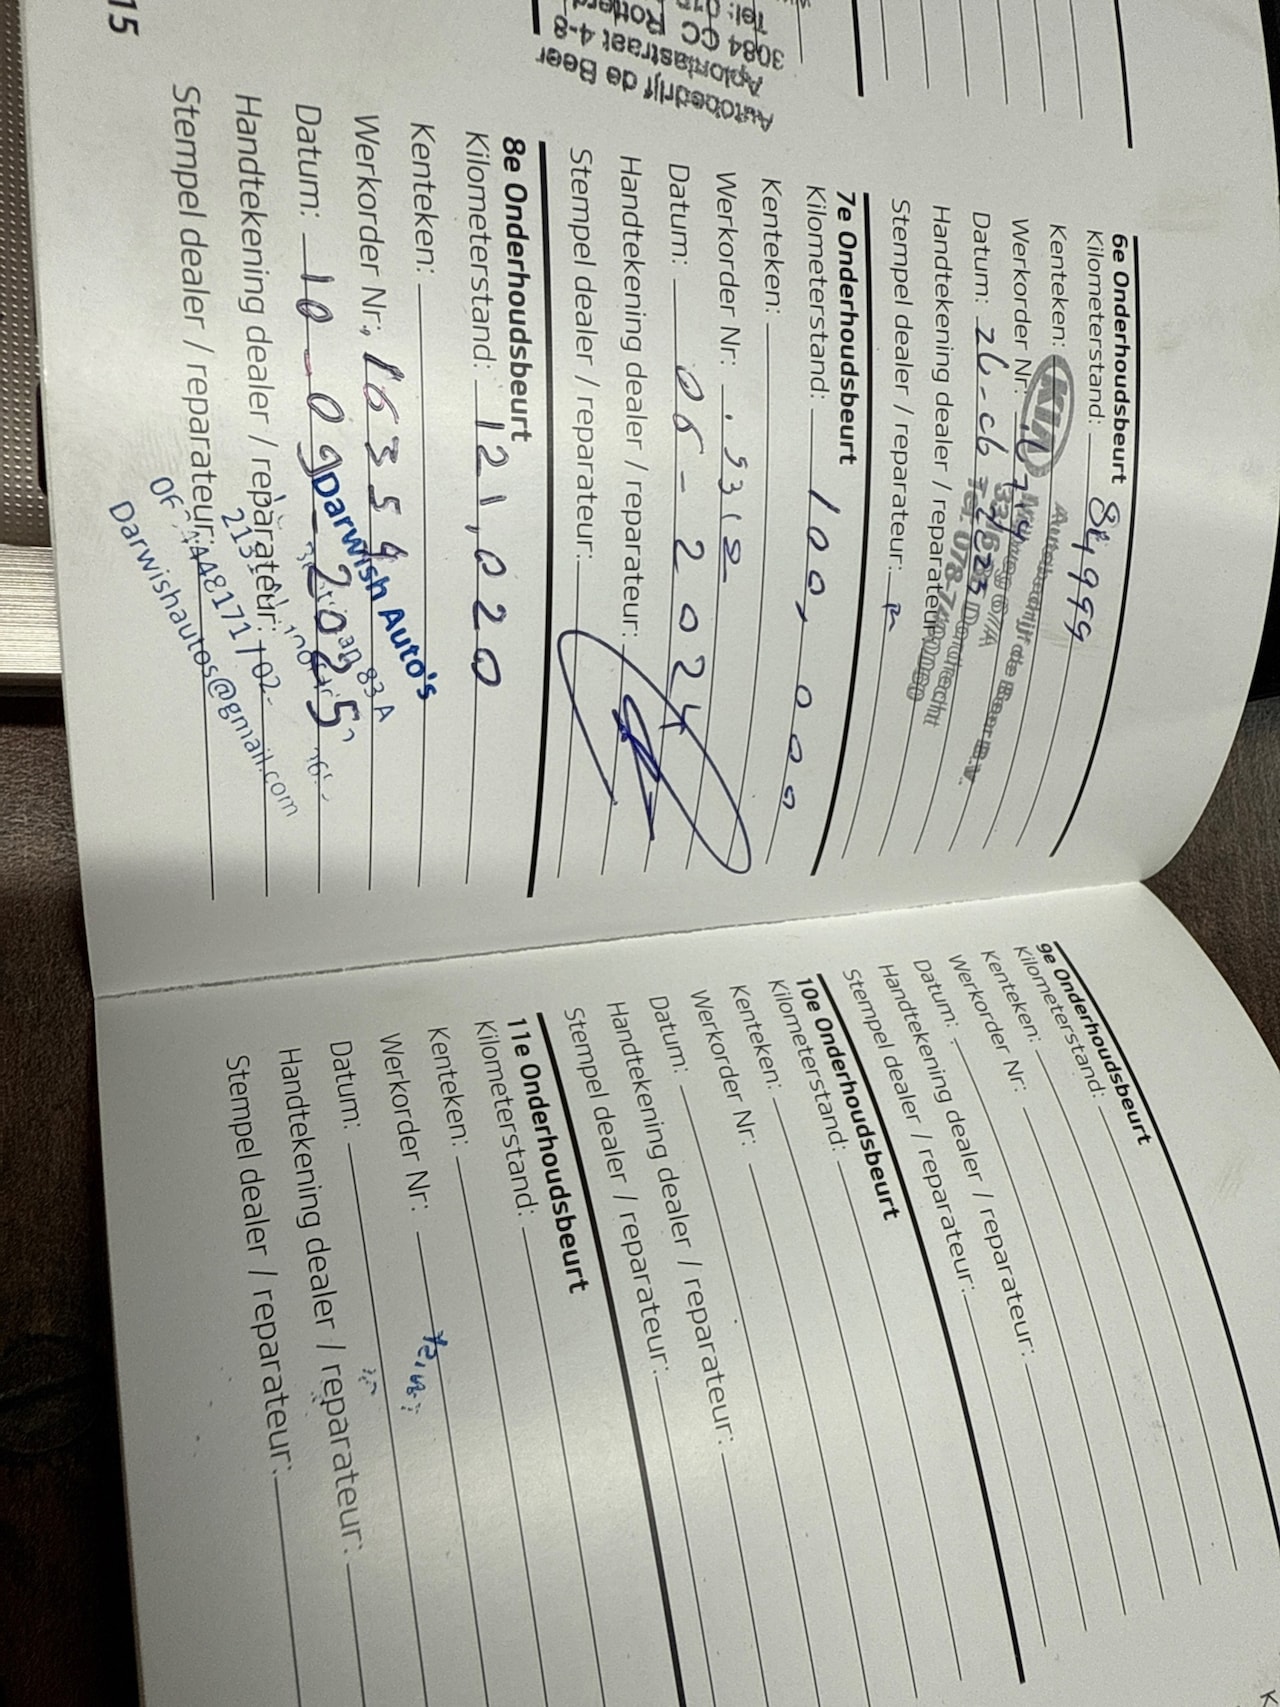 Autobedrijf de Beer
Aploniastraat 4-8
3084 CC Rotterd
Tel:
6e Onderhoudsbeurt
Kilometerstand: 84999
Kenteken:
KIA
Werkorder Nr:
Datum:
Handtekening dealer / reparateur:
Stempel dealer / reparateur:
7e Onderhoudsbeurt
Kilometerstand: 100,000
Kenteken:
Werkorder Nr:
Datum: 06-2024
Handtekening dealer / reparateur:
Stempel dealer / reparateur:
8e Onderhoudsbeurt
Kilometerstand: 121,020
Kenteken:
Werkorder Nr: 16354
Datum: 10-09-2025
Handtekening dealer / reparateur:
Stempel dealer / reparateur:
Darwish Auto's
Darwishautos@gmail.com
15
9e Onderhoudsbeurt
Kilometerstand:
Kenteken:
Werkorder Nr:
Datum:
Handtekening dealer / reparateur:
Stempel dealer / reparateur:
10e Onderhoudsbeurt
Kilometerstand:
Kenteken:
Werkorder Nr:
Datum:
Handtekening dealer / reparateur:
Stempel dealer / reparateur:
11e Onderhoudsbeurt
Kilometerstand:
Kenteken:
Werkorder Nr:
Datum:
Handtekening dealer / reparateur:
Stempel dealer / reparateur: